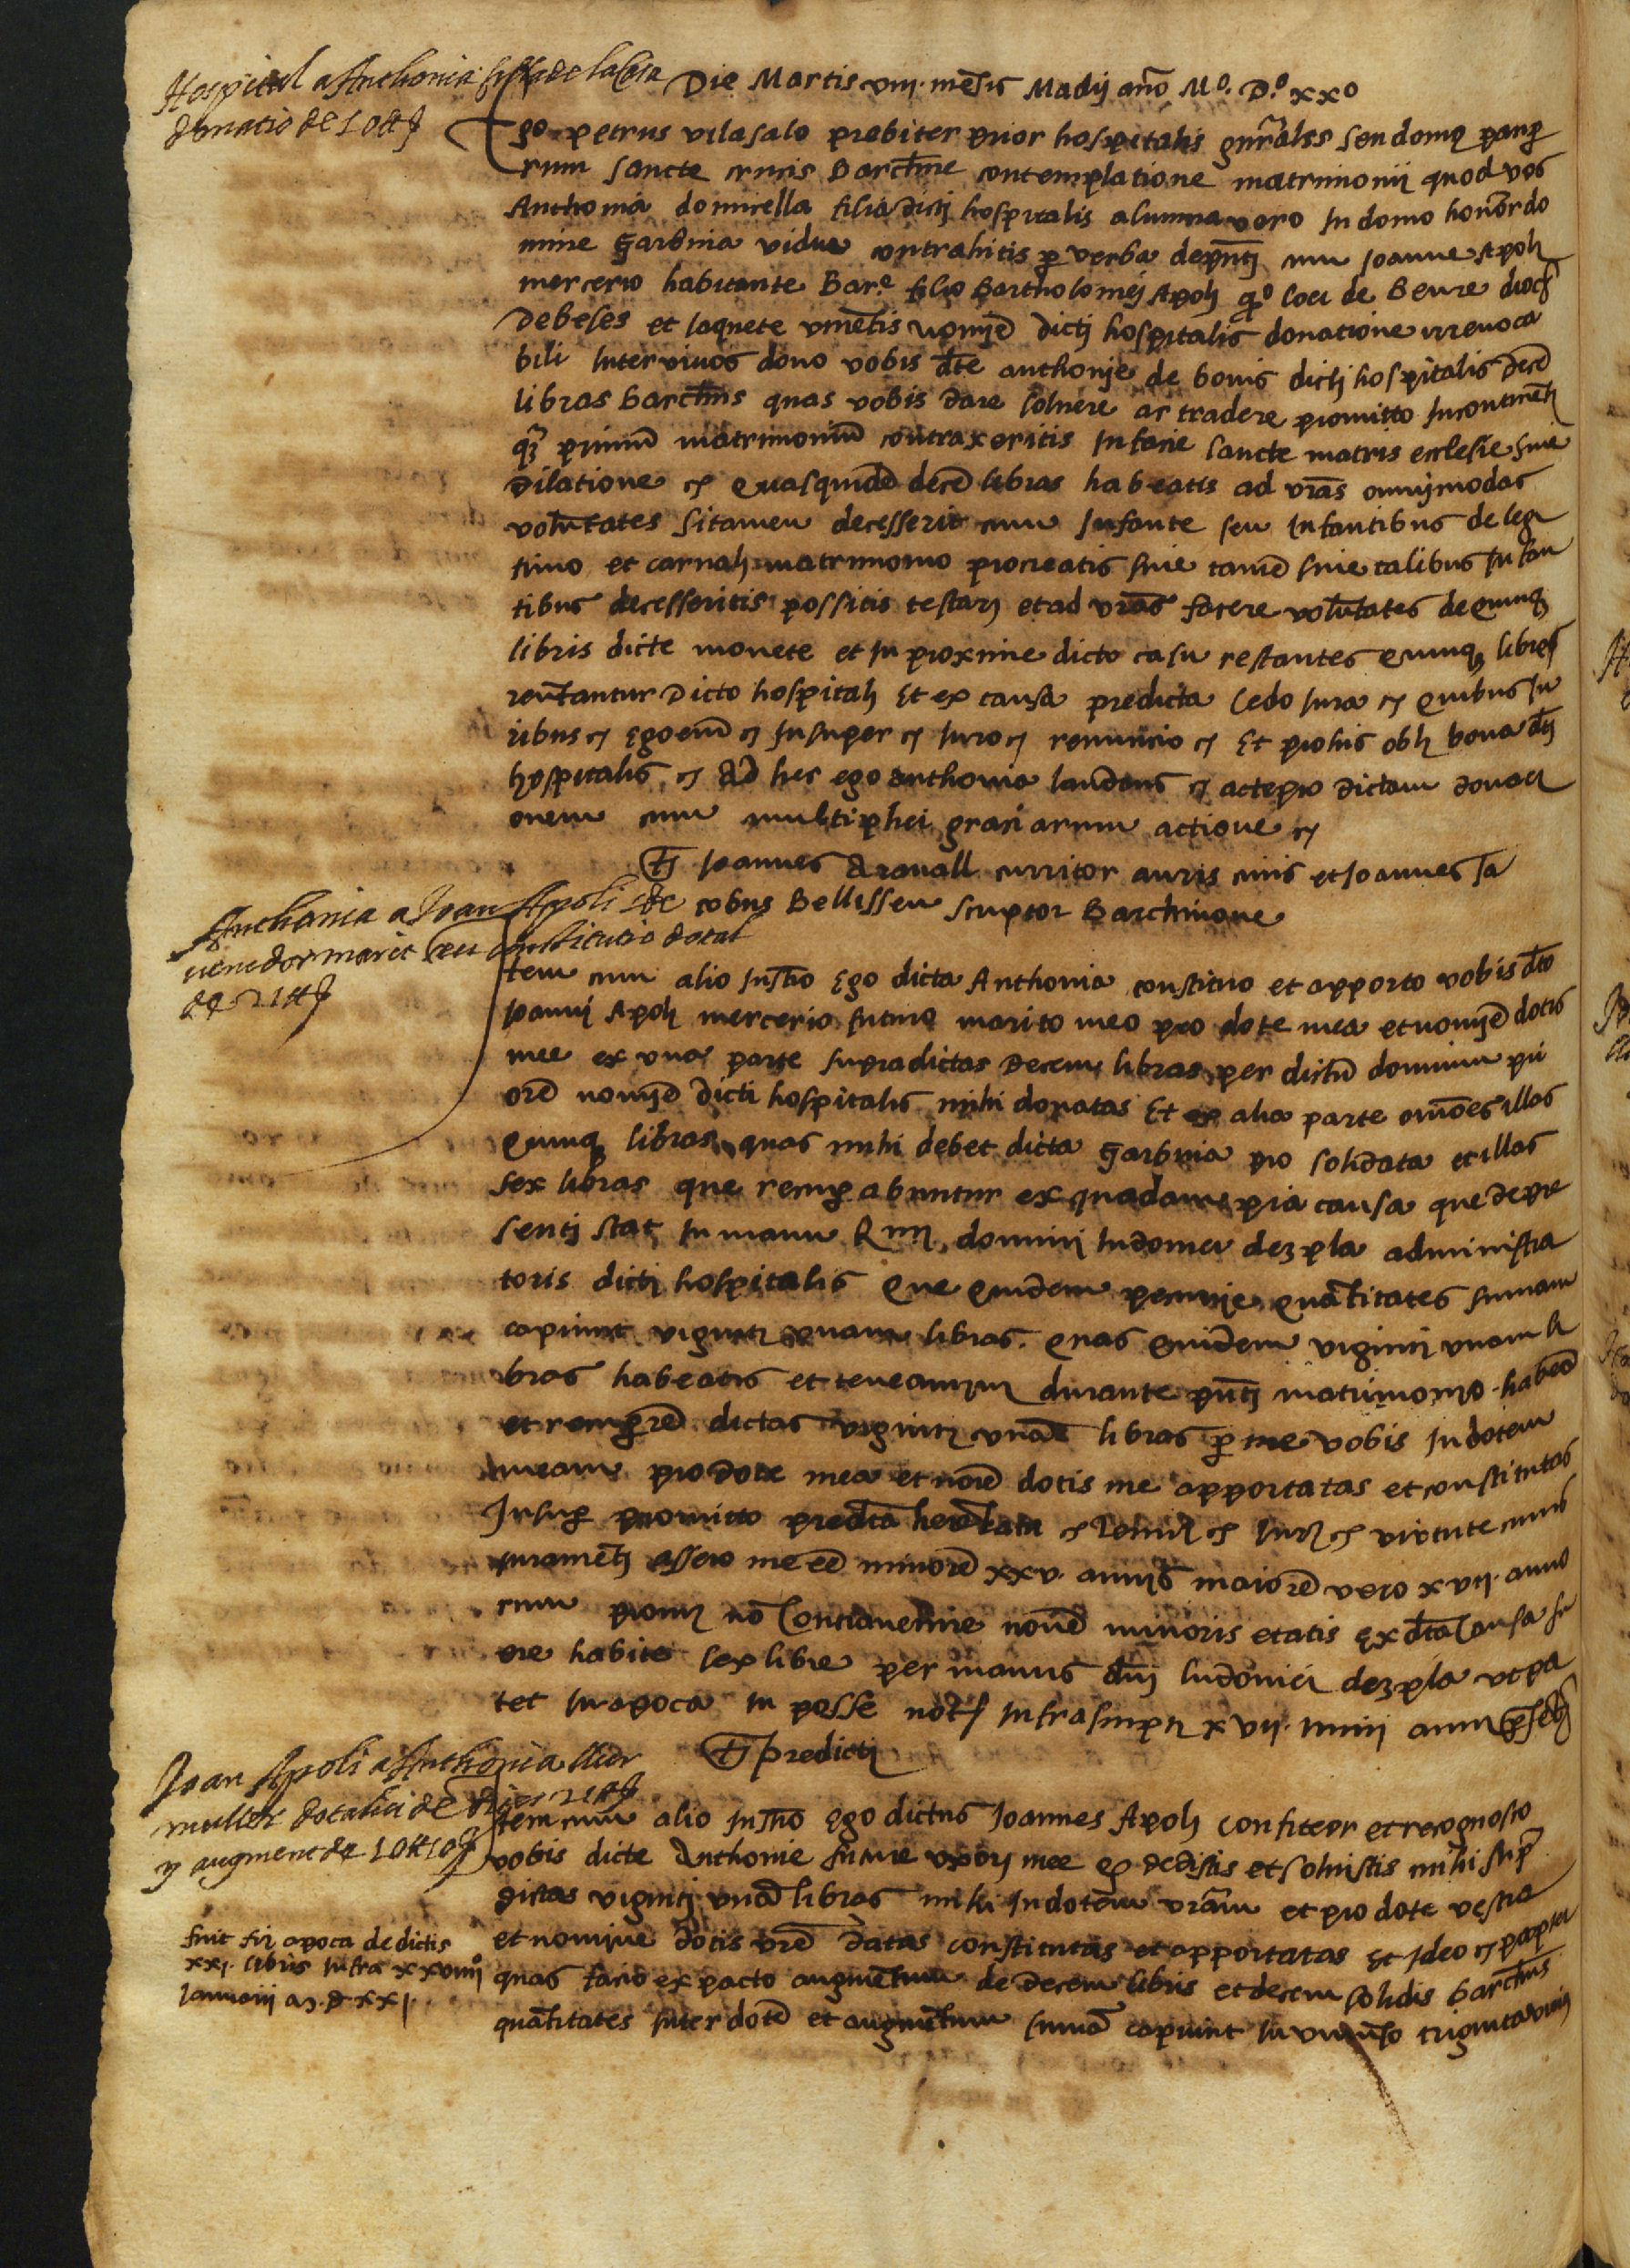 Hospital a Anthonia filla de la Casa
donatio de 10 ℔
Die Martis viii. mēsis Madij año Mo. Do. xxo
Ego petrus vilasalo prebiter prior hospitalis gn̄ralis seu domus paupe
rum sancte crucis Barchn̄e contemplatione matrimonii quod vos
Anthonia domicella filia dicti hospitalis alumna vero In domo honor. do
mine Garbina vidue contrahitis p verba de pn̄ti cum Joanne Apoli
mercerio habitante Bar.e filio Bartholomei Apoli qo loci de Beure dioc̄
Debeses et Jaquete vmētis nomīe dicti hospitalis donatione irreuoca
bili Inter viuos dono vobis dc̄te anthonie de bonis dicti hospitalis decē
libras barchn̄s quas vobis dare soluere ac tradere promitto Incontinēti
q̄ primū matrimoniū contraxeritis In facie sancte matris ecclesie sine
Dilatione etc Quasquidē decē libras habeatis ad vr̄as omnimodas
volūtates Si tamen decesserit cum Infante seu Infantibus de legi
timo et carnali matrimonio procreatis sine tamē sine talibus Infan
tibus decesseritis possitis testari et ad vr̄as facere volūtates de quinq
libris dicte monete et In proxime dicto casu restantes quinq libre
reūtantur Dicto hospitali Et ex causa predicta Cedo Iura etc Quibus Iu
ribus etc Ego enim etc Insuper etc Iuro etc renuncio etc Et pro his obli bona dc̄ti
hospitalis etc Ad hec ego anthonia laudans etc accepto dictam donati
onem cum multiplici graciarum actione etc
Tes Joannes Arauall curritor auris ciuis et Joannes Ja
cobus Bellisseu scriptor Barchinone
Anthonia a Joan Apoli de
venedor marit seu constitutio dotal
de 21 ℔
Item cum alio Insto Ego dicta Anthonia constituo et apporto vobis dc̄to
Joanni Apoli mercerio futuro marito meo pro dote mea et nomīe dotis
mee ex vna parte supradictas Decem libras per dictū dominum pri
orē nomīe dicti hospitalis mihi donatas Et ex alia parte omnes illas
quinq libras quas mihi debet dicta Garbina pro solidata et illas
sex libras que recupabuntur ex quadam pia causa que de pre
senti stat In manu R.mi domini ludouici dezpla administra
toris dicti hospitalis Que quidem pecunie quātitates sumam
capiunt viginti vnam libras. Quas quidem viginti vnam li
bras habeatis et teneamini durante pn̄ti matrimonio. habeo
et recupēre dictas viginti vnā libras p me vobis In dotem
meam pro dote mea et noīe dotis me apportatas et constitutas
Insup promitto predc̄ta etc Iur etc virtute cuius
Iuramēti assero me eē minorē xxv. annis maiorē vero xvii. anno
rum promi nō Contrauenire noīe minoris etatis Ex dc̄ta causa fu
ere habite sex libre per manus dn̄i ludouici dezpla vt pa
tet In apoca In posse notj Infrascripti xvii. Iunii anni pn̄tis
Tes predicti
Joan Apoli a Anthonia llur
muller dotalici de dites 21 ℔
y augment de 10 ℔ 10 ſ
Item cum alio Insto Ego dictus Joannes Apoli confiteor et recognosco
vobis dicte Anthonie future vxori mee q dedistis et soluistis mihi sup
dictas viginti vnā libras mihi In dotem vr̄am et pro dote vestra
et nomine dotis vr̄e datas constitutas et apportatas Et Ideo etc propter
quas facio ex pacto augmētum de decem libris et decem solidis barchn̄s
quātitates Inter dotē et augmētum sumā capiunt In vniuerso triginta vnius
fuit fir apoca de dictis
xxj. libris Infra xxviiij
Januarij a.º D xxj.